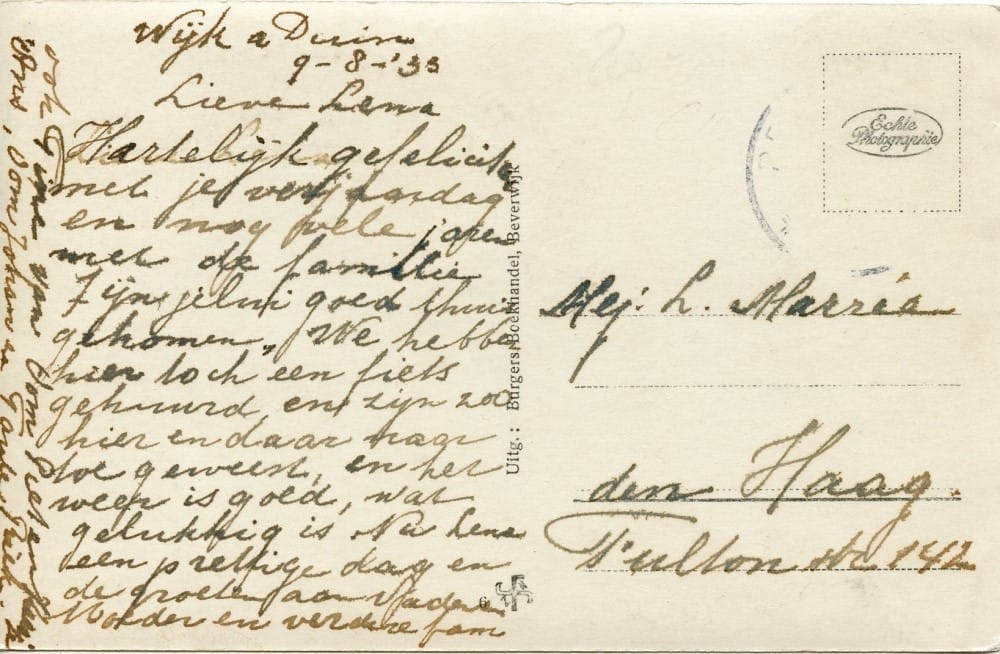 Wijk a Duin
9-8-'33
Lieve Lena
Hartelijk gefelicite
met je verjaardag
en nog vele jaren
met de familie
Zijn jelui goed thuis
gekomen, We hebbe
hier toch een fiets
gehuurd en zijn zoo
hier en daar naar
toe geweest, en het
weer is goed, wat
gelukkig is Nu Lena
een prettige dag en
de groeten aan Vader en
Moeder en verdere fam
ook Tine van Oom Piet en
Ans, Oom Johan en Tante Riek.
Uitg.: Burgers Boekhandel, Beverwijk
6
Echte
Photographie
Mej. L. Marréa
den Haag.
Fultonstr 142